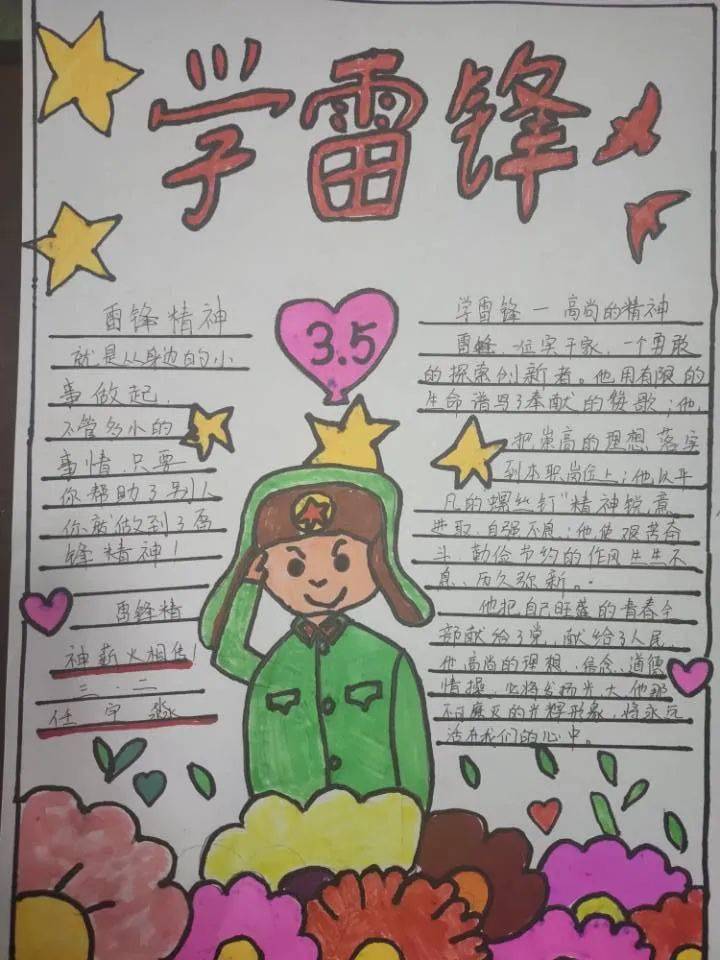 学雷锋
3.5
雷锋精神
就是从身边的小
事做起,
不管多小的
事情,只要
你帮助了别人
你就做到了雷
锋精神!
雷锋精
神薪火相传!
三.二
任宇淼
学雷锋一高尚的精神
雷锋,一位实干家,一个勇敢
的探索创新者。他用有限的
生命谱写了奉献的赞歌;他
把崇高的理想落实
到本职岗位上;他以平
凡的"螺丝钉"精神锐意
进取,自强不息;他使艰苦奋
斗、勤俭节约的作风生生不
息、历久弥新。
他把自己旺盛的青春全
部献给了党、献给了人民,
他高尚的理想、信念、道德
情操,必将发扬光大,他那
不可磨灭的光辉形象,将永远
活在我们的心中。